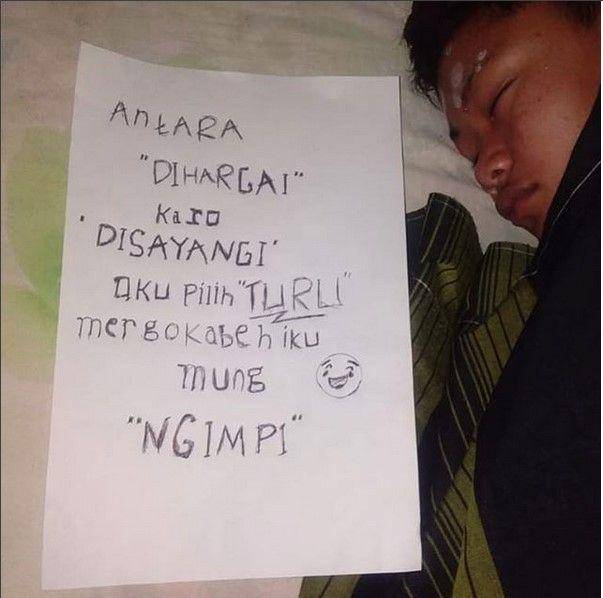 AntARA
"DIHARGAI"
Karo
'DISAYANGI'
AKU Pilih "TURU"
mergo kabeh iku
mung
"NGIMPI"